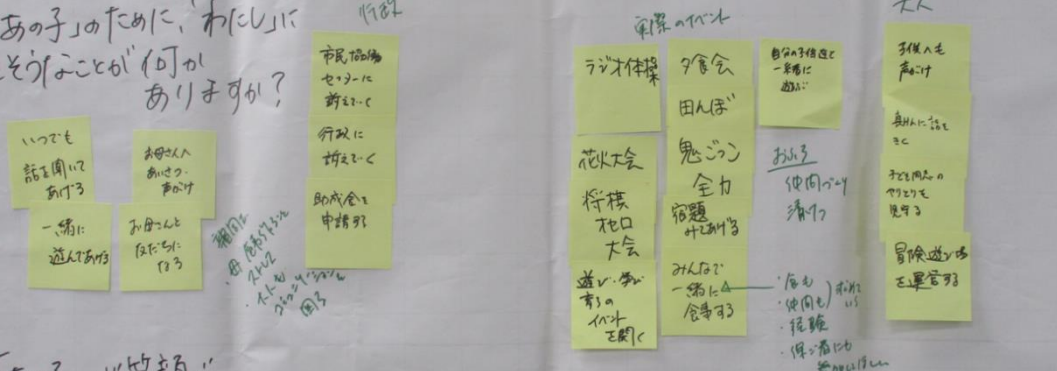 あの子」のために、「わたし」に
そうなことが何か
ありますか?
いつでも
話を聞いて
あげる
お母さんへ
あいさつ・
声がけ
一緒に
遊んであげる
お母さんと
友だちに
なる
ストレス
困る
行政
市民協働
センターに
訴えていく
行政に
訴えていく
助成金を
申請する
実際のイベント
ラジオ体操
花火大会
将棋
オセロ
大会
遊び・学び
育ちの
イベント
を開く
夕食会
田んぼ
鬼ごっこ
全力
宿題
みてあげる
みんなで
一緒に
食事する
自分の子供達で
一緒に
遊ぶ
おふろ
仲間づくり
清けつ
・食も
・仲間も
・経験
・保ご者にも
大人
子供へも
声がけ
話を
きく
子ども同志の
やりとりも
見守る
冒険遊び場
を運営する